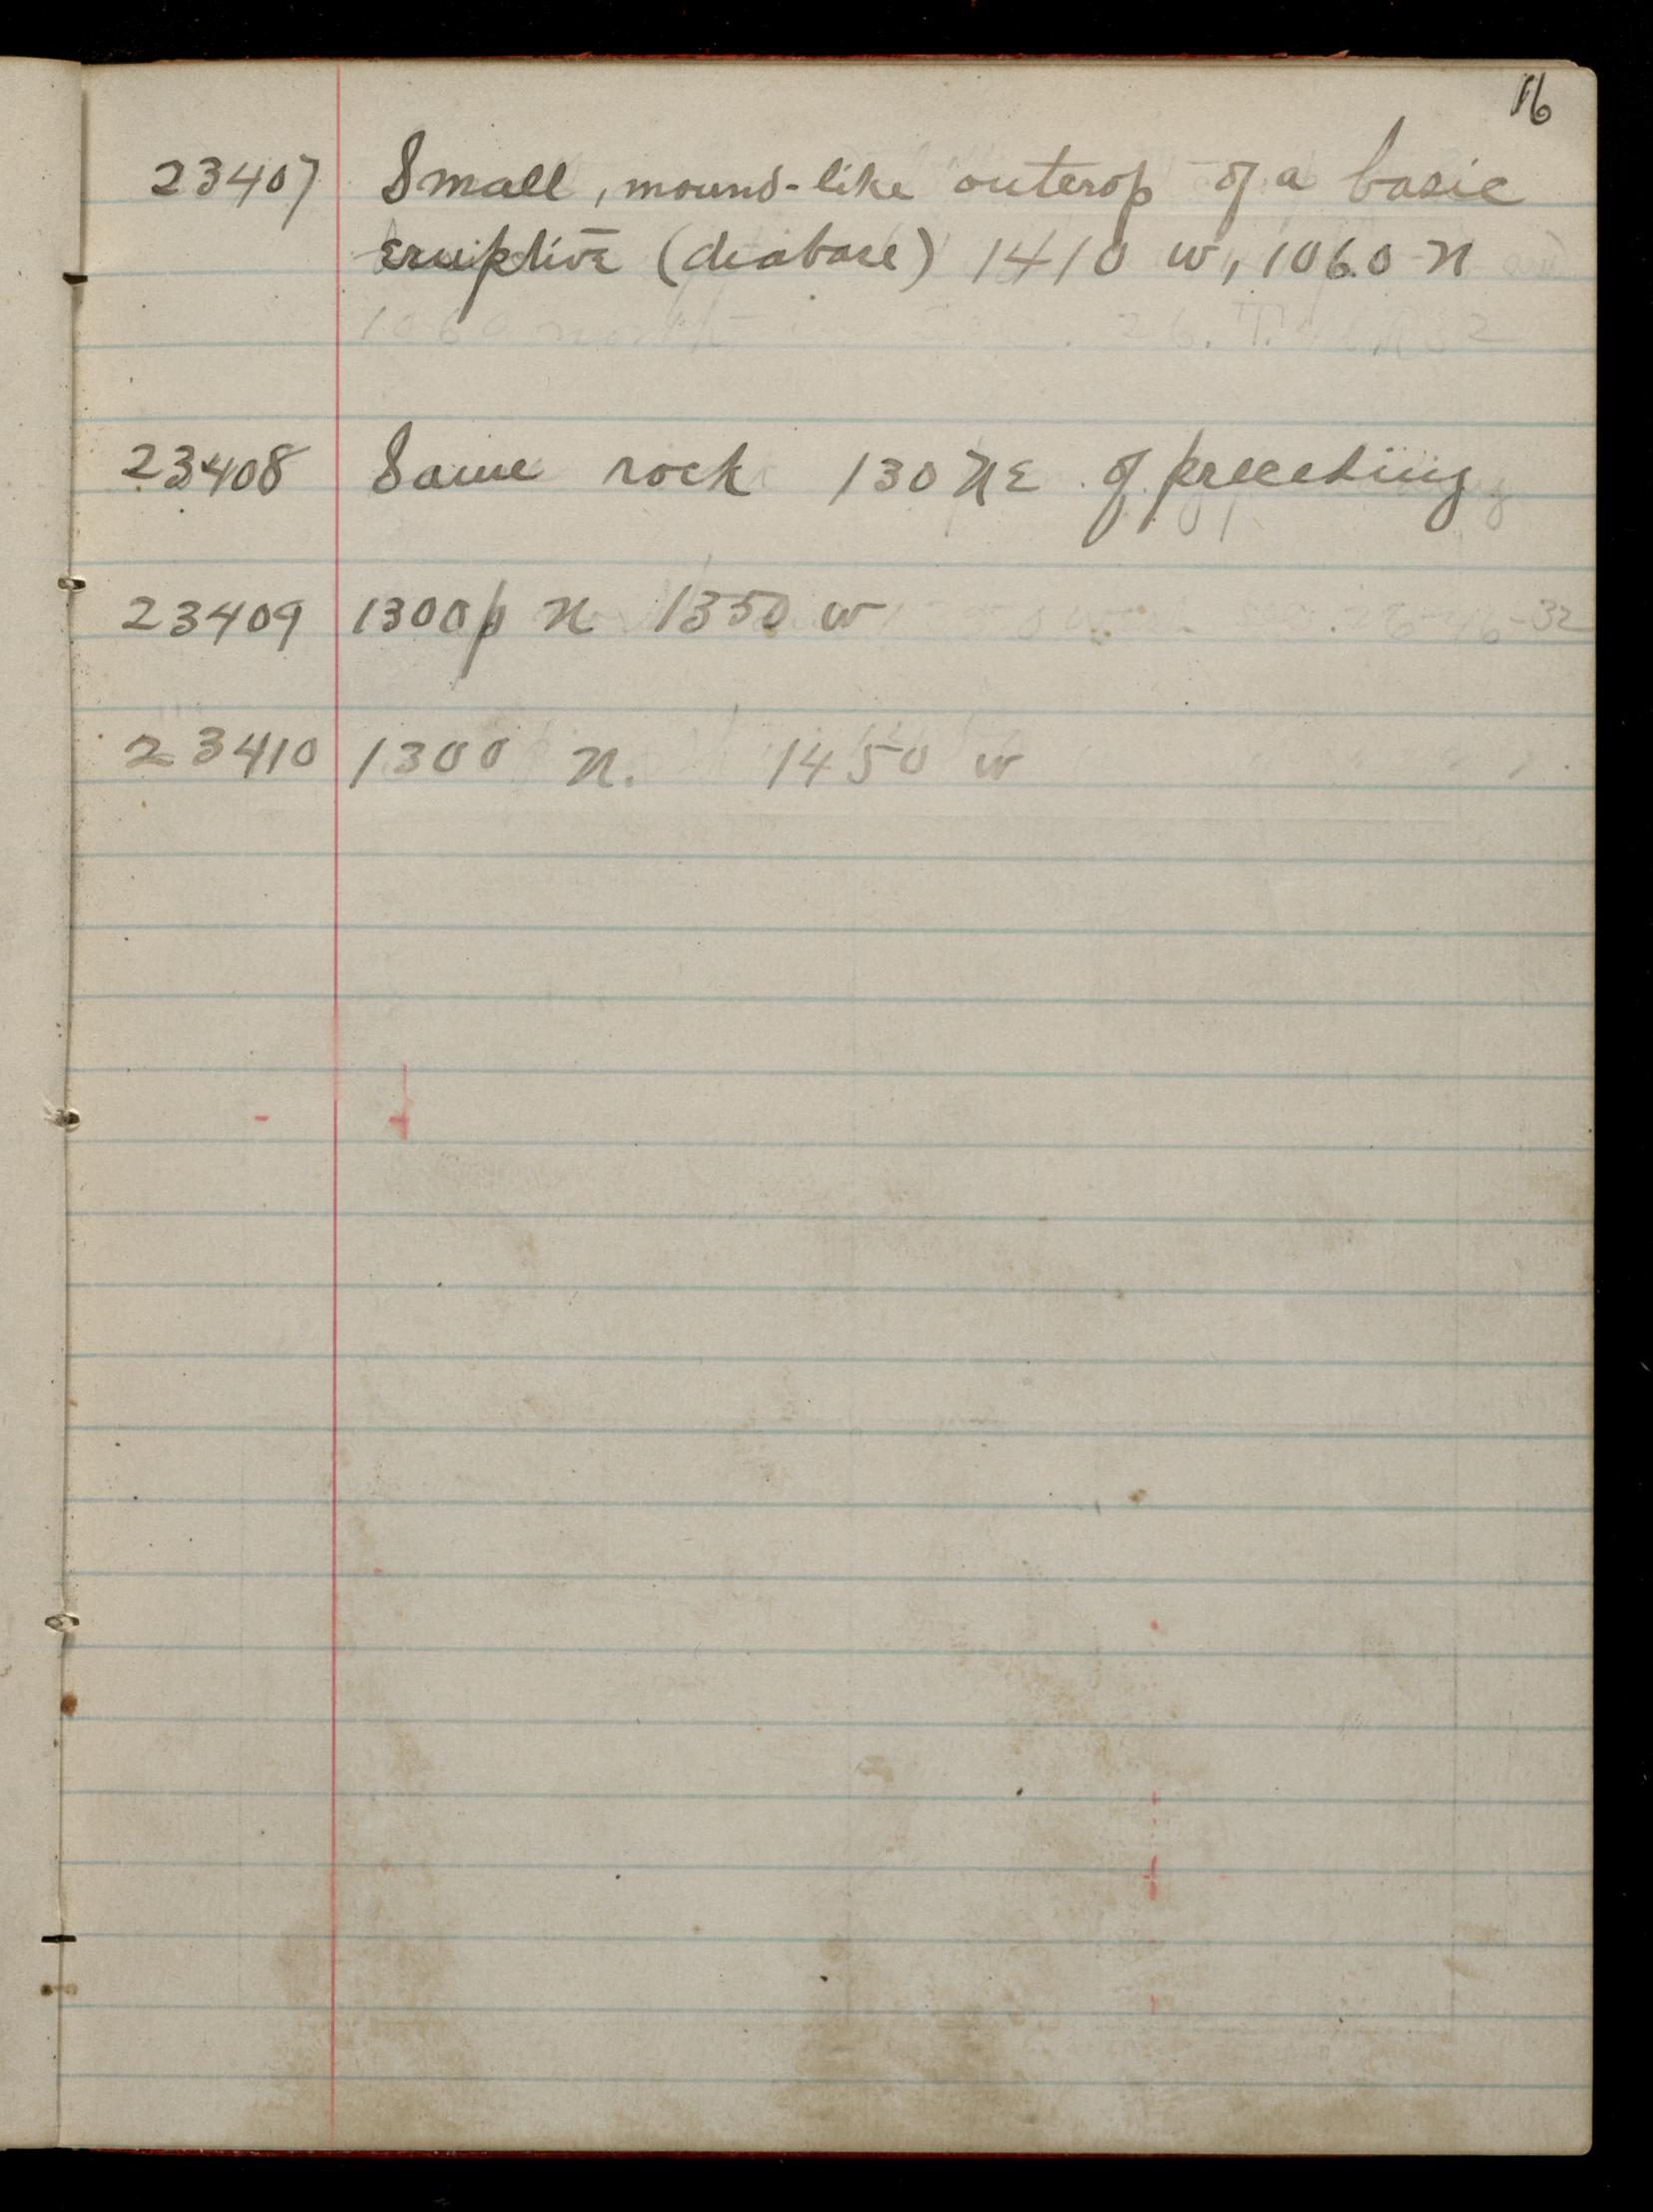 16
23407 Small, mound-like outcrop of a basic
eruptive (diabase) 1410 W, 1060 N
23408 Same rock 130 NE of preceding
23409 1300p N 1350 W
23410 1300 N. 1450 W